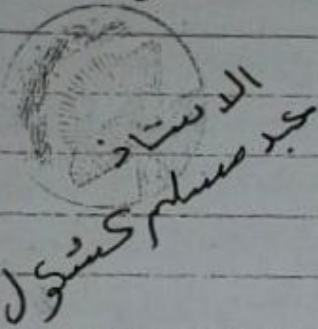 الاستاذ
عبد مسلم كشكول